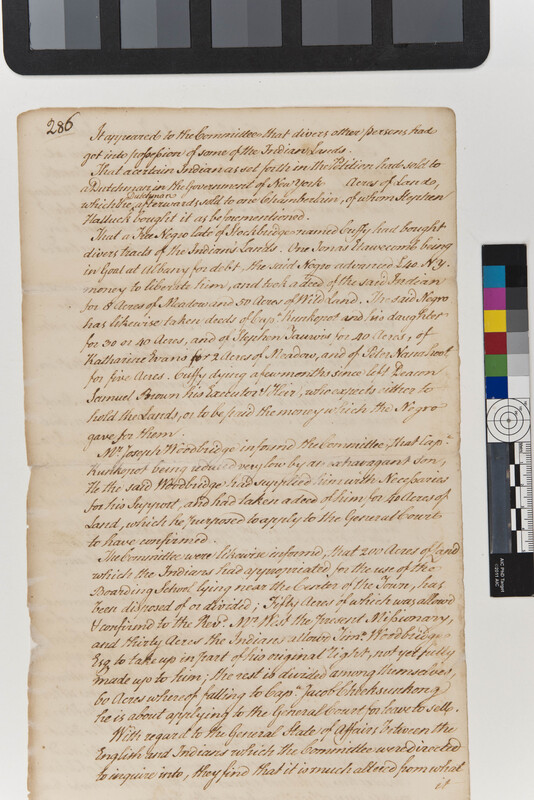 286
It appeared to the Committee that divers other persons had
got into possession of some of the Indian Lands.
That a certain Indian as set forth in the Petition had sold to
a Dutchman in the Government of New York Acres of Land,
which the Dutchman afterwards sold to one Chamberlain, of whom Stephen
Halluck bought it as beforementioned.
That a Free Negro late of Stockbridge named Cuffy had bought
divers tracts of the Indian's Lands. One Jonas being
in Goal at Albany for debt, the said Negro advanced £40 N.Y.
money to liberate him, and took a deed of the said Indian
for 8 Acres of Meadow and 50 Acres of Wild Land. The said Negro
has likewise taken deeds of Capt. Kunkapot and his daughter
for 30 or 40 Acres, and of Stephen for 40 Acres, of
Katharine for 2 Acres of Meadow, and of Peter
for five Acres. Cuffy dying a few months since left Deacon
Samuel Brown his Executor & Heir, who expects either to
hold the Lands, or to be paid the money which the Negro
gave for them.
Mr. Joseph Woodbridge informed the Committee that Capt.
Kunkapot being reduced very low by an extravagant Son,
He the said Woodbridge had supplied him with Necessaries
for his Support, and had taken a deed of him for 40 Acres of
Land, which he purposed to apply to the General Court
to have confirmed.
The Committee were likewise informed, that 200 Acres of land
which the Indians had appropriated for the use of the
Boarding School lying near the Center of the Town, has
been disposed of or divided; Fifty Acres of which was allowd
& confirmed to the Revd. Mr. West the present Missionary,
and thirty Acres the Indians allow Timo. Woodbridge
Esq. to take up in part of his original Right, not yet fully
made up to him; the rest is divided among themselves,
60 Acres whereof falling to Capt. Jacob Cheeksunkong
he is about applying to the General Court for leave to sell.
With regard to the General State of Affairs between the
English and Indians which the Committee were directed
to inquire into, they find that it is much altered from what
it